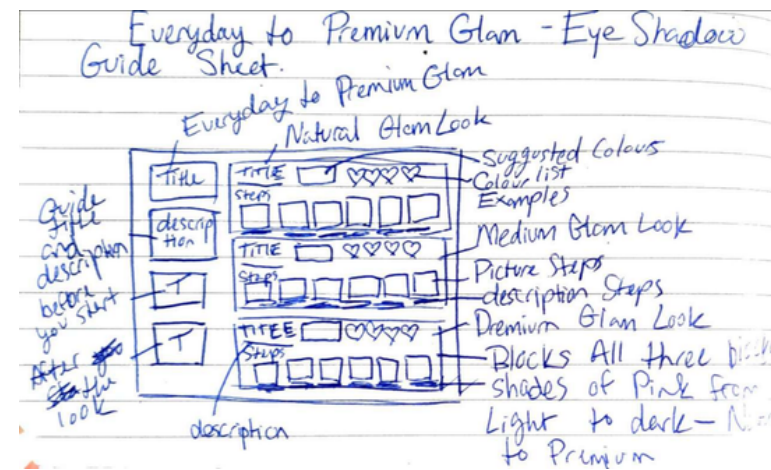 Everyday to Premivm Glam - Eye Shadow
Guide Sheet.
Everyday to Premium Glam
Natural Glam Look
Title
description
T
T
Guide
title
and
description
before
you start
After
the
look
TITLE
Steps
TITLE
Steps
TITEE
Steps
description
Suggusted Colours
Colour list
Examples
Medium Glam Look
Picture Steps
description Steps
Premium Glam Look
Blocks All three
shades of Pink from
Light to dark -
to Premium